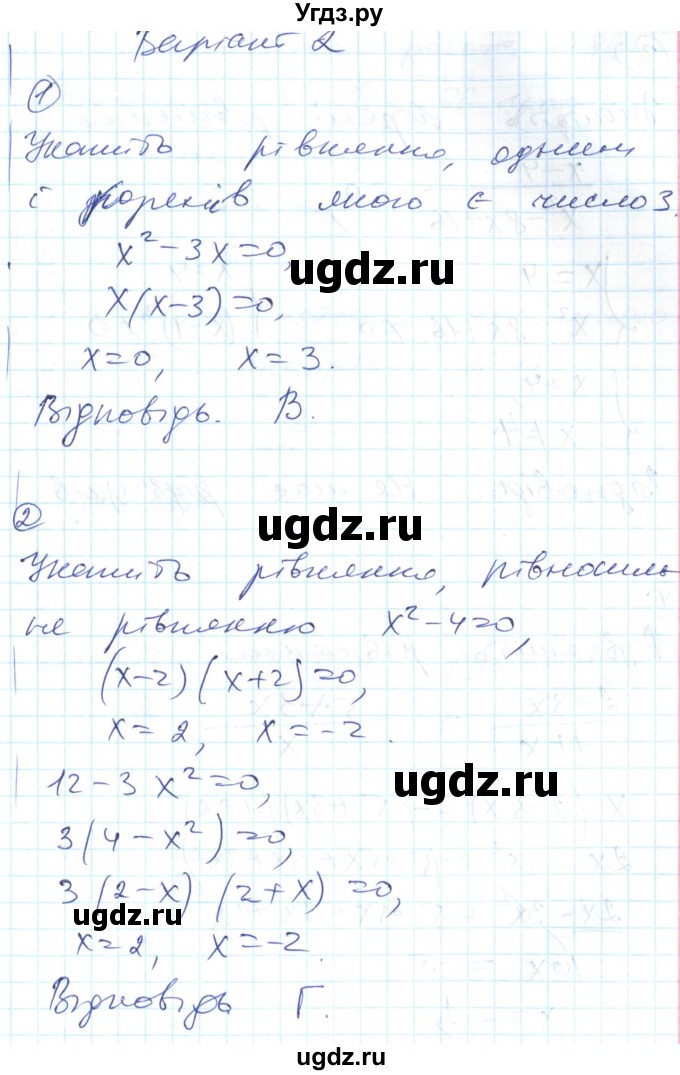 Угдз.ру
Варіант 2
1
Укажіть рівняння, одним
з коренів якого є число 3.
x² - 3x = 0,
ugdz.ru
x(x-3) = 0,
x = 0, x = 3.
Відповідь. В.
2
ugdz.ru
Укажіть рівняння, рівносиль
не рівнянню x² - 4 = 0,
(x-2)(x+2) = 0,
x = 2, x = -2.
12 - 3x² = 0,
ugdz.ru
3(4 - x²) = 0,
3(2-x)(2+x) = 0,
ugdz.ru
x = 2, x = -2.
Відповідь Г.
ugdz.ru